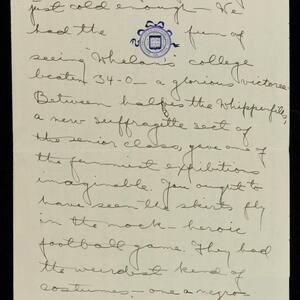 just cold enough - We
had the fun of
seeing Whelan's college
beaten 34-0 - a glorious victoree.
Between halfs the Whipperfills,
a new suffragette sect of
the senior class, gave one of
the funniest exhibitions
imaginable. You ought to
have seen the skirts fly
in the mock-heroic
football game. They had
the weirdest kind of
costumes - one a negro